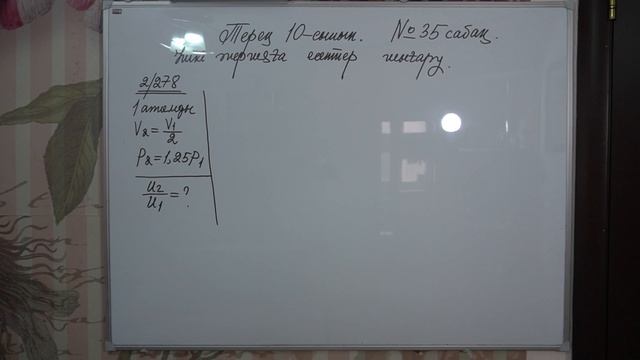 Терең 10-сынып. № 35 сабақ.
Ішкі энергияға есептер шығару.
2/278
1 атомды
V₂ = V₁/2
P₂ = 1,25P₁
U₂/U₁ = ?